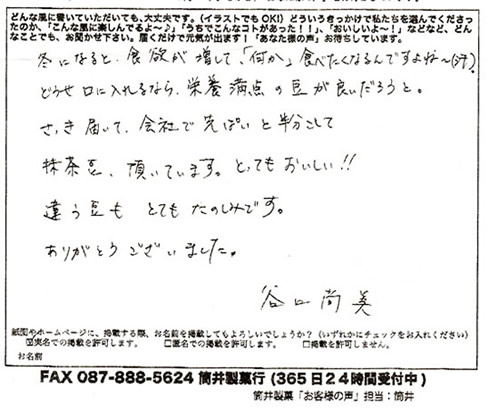 どんな風に書いていただいても、大丈夫です。(イラストでもOK!) どういうきっかけで私たちを選んでくださっ
たのか、「こんな風に楽しんでるよ～♪」「うちでこんなコトがあった！！」、「おいしいよ～！」などなど、どん
なことでも、お聞かせ下さい。届くだけで元気が出ます！「あなた様の声」お待ちしています。
冬になると、食欲が増して、「何か」食べたくなるんですよね～(汗)。
どうせ口に入れるなら、栄養満点の豆が良いだろうと。
さっき届いて、会社で先ぱいと半分こして
抹茶豆、頂いています。とってもおいしい!!
違う豆も とてもたのしみです。
ありがとうございました。
谷口尚美
紙面やホームページに、掲載する際、お名前を掲載してもよろしいでしょうか？(いずれかにチェックをお入れください)
☑実名での掲載を許可します。 □匿名での掲載を許可します。 □掲載を許可しません。
お名前
FAX 087-888-5624 筒井製菓行 (365日24時間受付中)
筒井製菓「お客様の声」担当：筒井